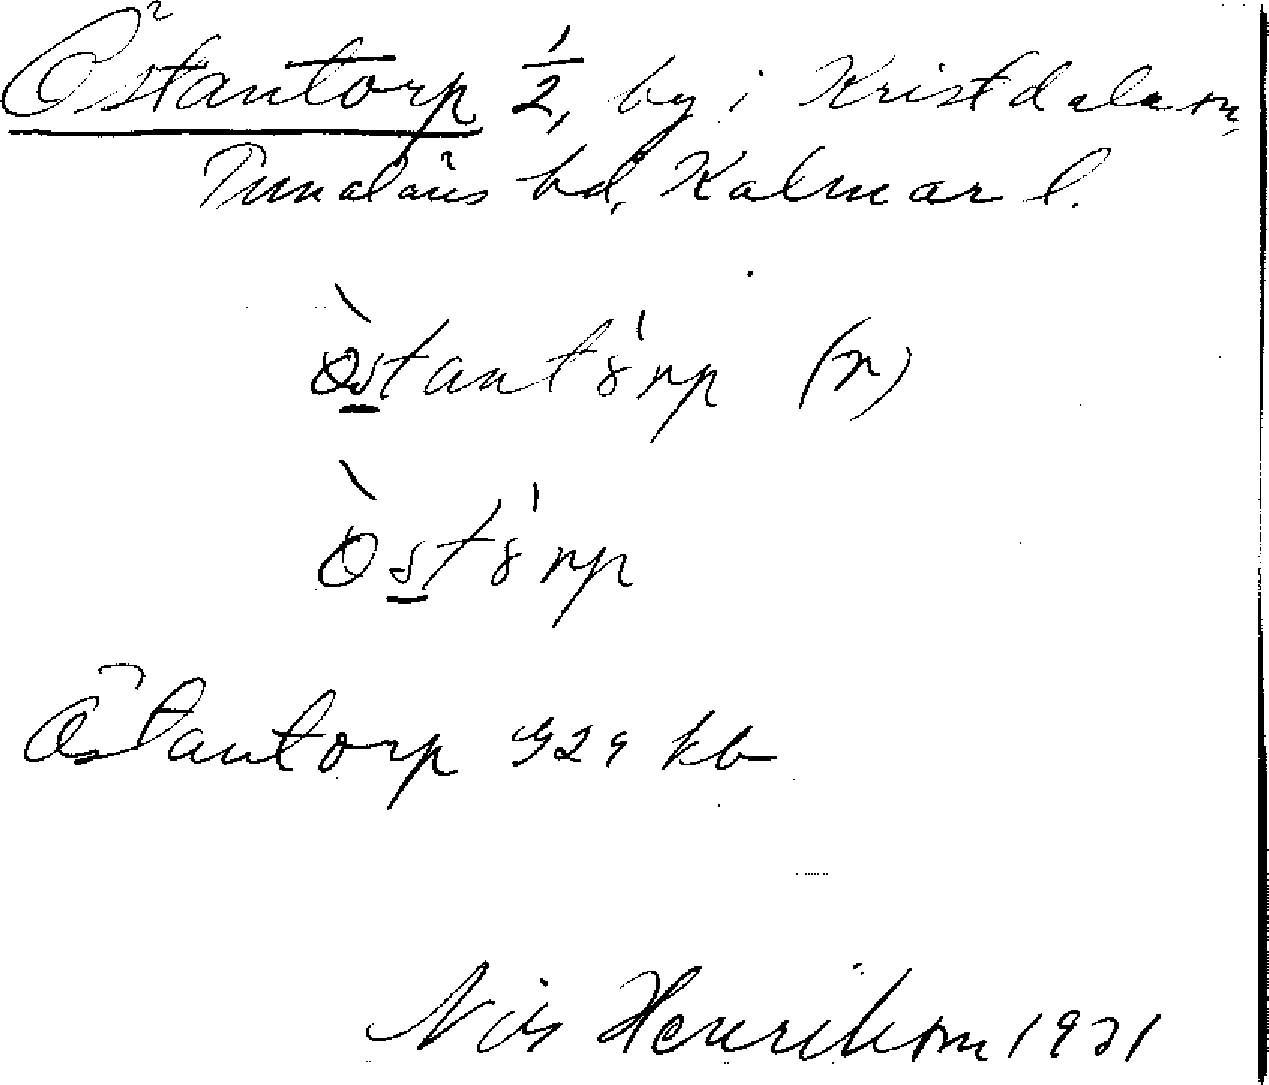 Östantorp 1/2, by i Kristdala sn,
Tunaläns hd, Kalmar l.
òstantórp (n)
òstórp
Östantorp 929 kb
Nils Henrikson 1921